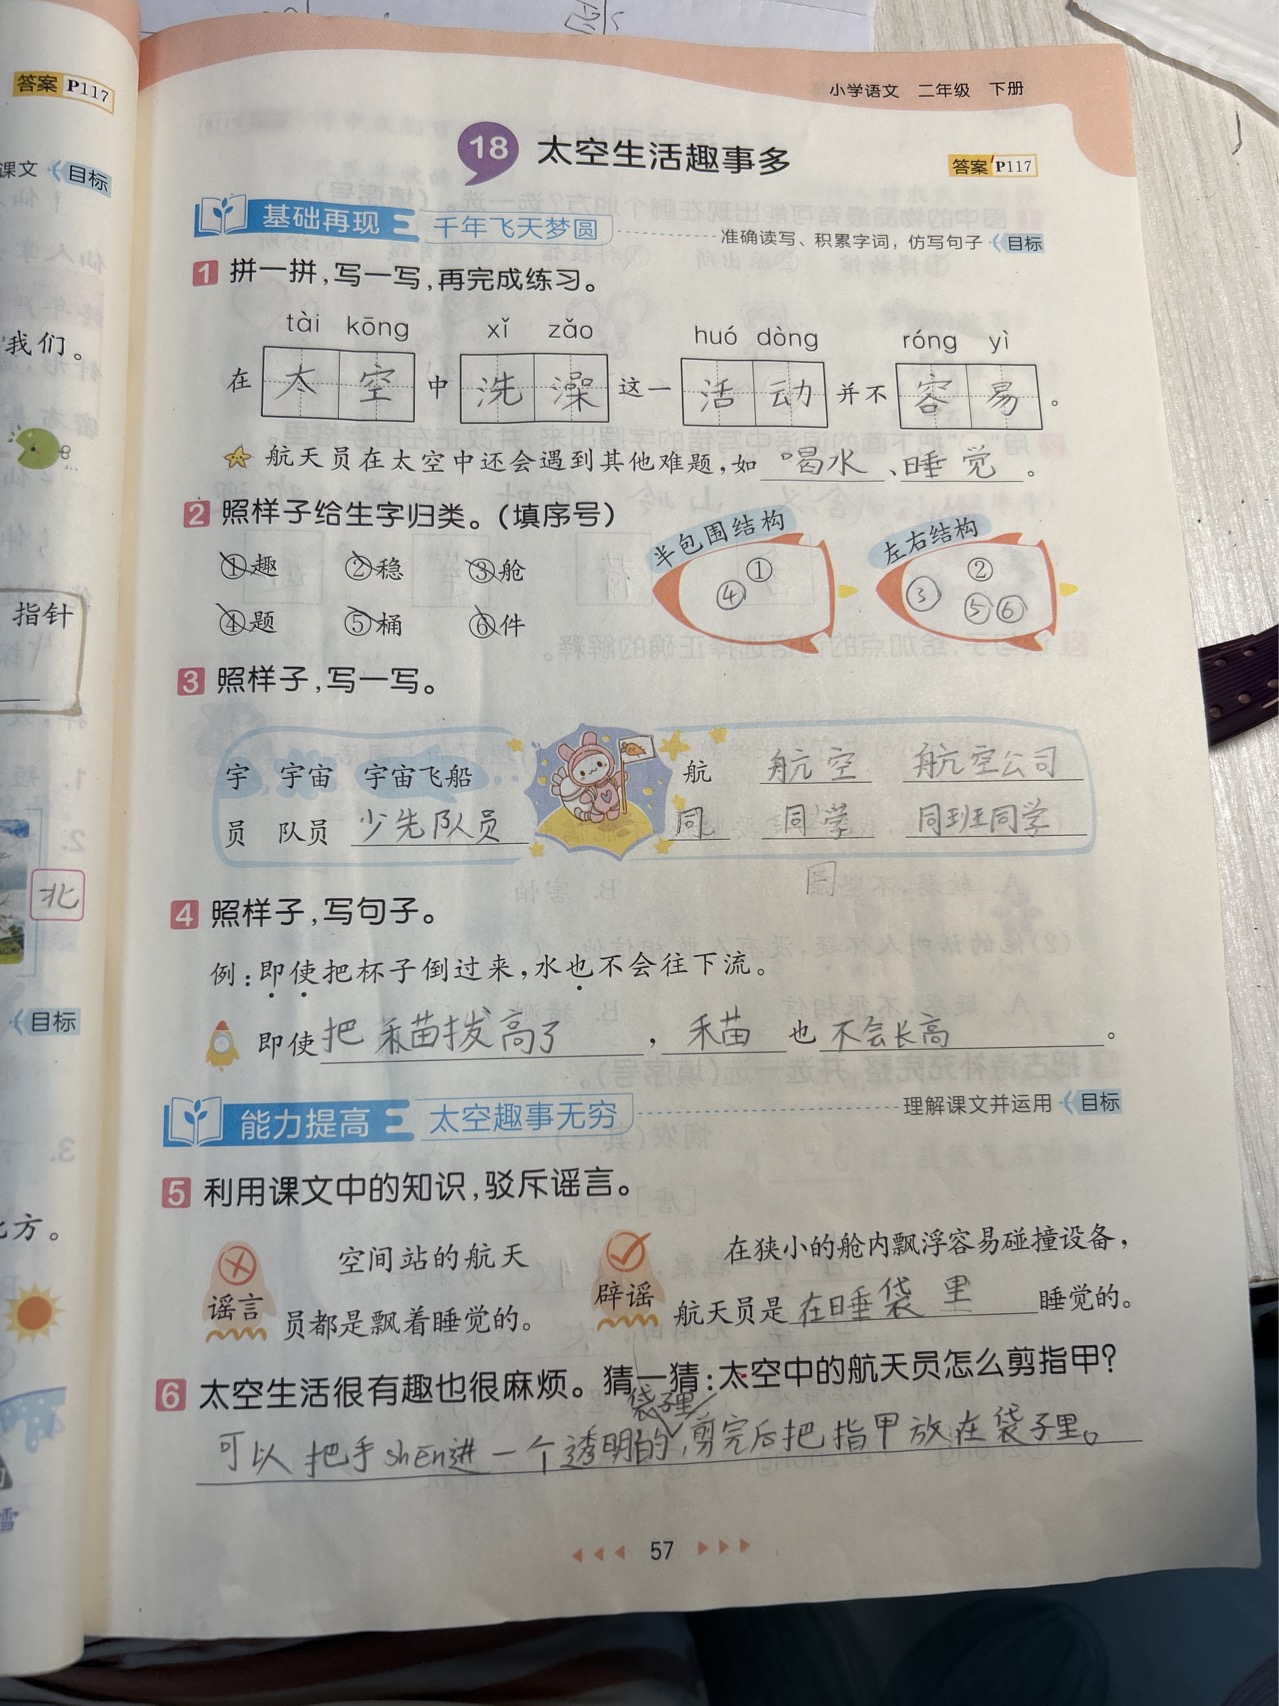 答案 P117
课文 目标
我们。
指针
北
目标
方。
雪
小学语文 二年级 下册
18 太空生活趣事多
答案 P117
基础再现 千年飞天梦圆 准确读写、积累字词，仿写句子 目标
1 拼一拼，写一写，再完成练习。
tài kōng xǐ zǎo huó dòng róng yì
在 太空 中 洗澡 这一 活动 并不 容易 。
航天员在太空中还会遇到其他难题，如 喝水 、睡觉 。
2 照样子给生字归类。（填序号）
①趣 ②稳 ③舱
④题 ⑤桶 ⑥件
半包围结构 ① ④
左右结构 ② ③ ⑤ ⑥
3 照样子，写一写。
宇 宇宙 宇宙飞船 航 航空 航空公司
员 队员 少先队员 同 同学 同班同学
4 照样子，写句子。
例：即使把杯子倒过来，水也不会往下流。
即使把禾苗拔高了，禾苗也不会长高。
能力提高 太空趣事无穷 理解课文并运用 目标
5 利用课文中的知识，驳斥谣言。
谣言 空间站的航天
员都是飘着睡觉的。
辟谣 在狭小的舱内飘浮容易碰撞设备，
航天员是在睡袋里睡觉的。
6 太空生活很有趣也很麻烦。猜一猜：太空中的航天员怎么剪指甲？
袋子里
可以把手shēn进一个透明的，剪完后把指甲放在袋子里。
57